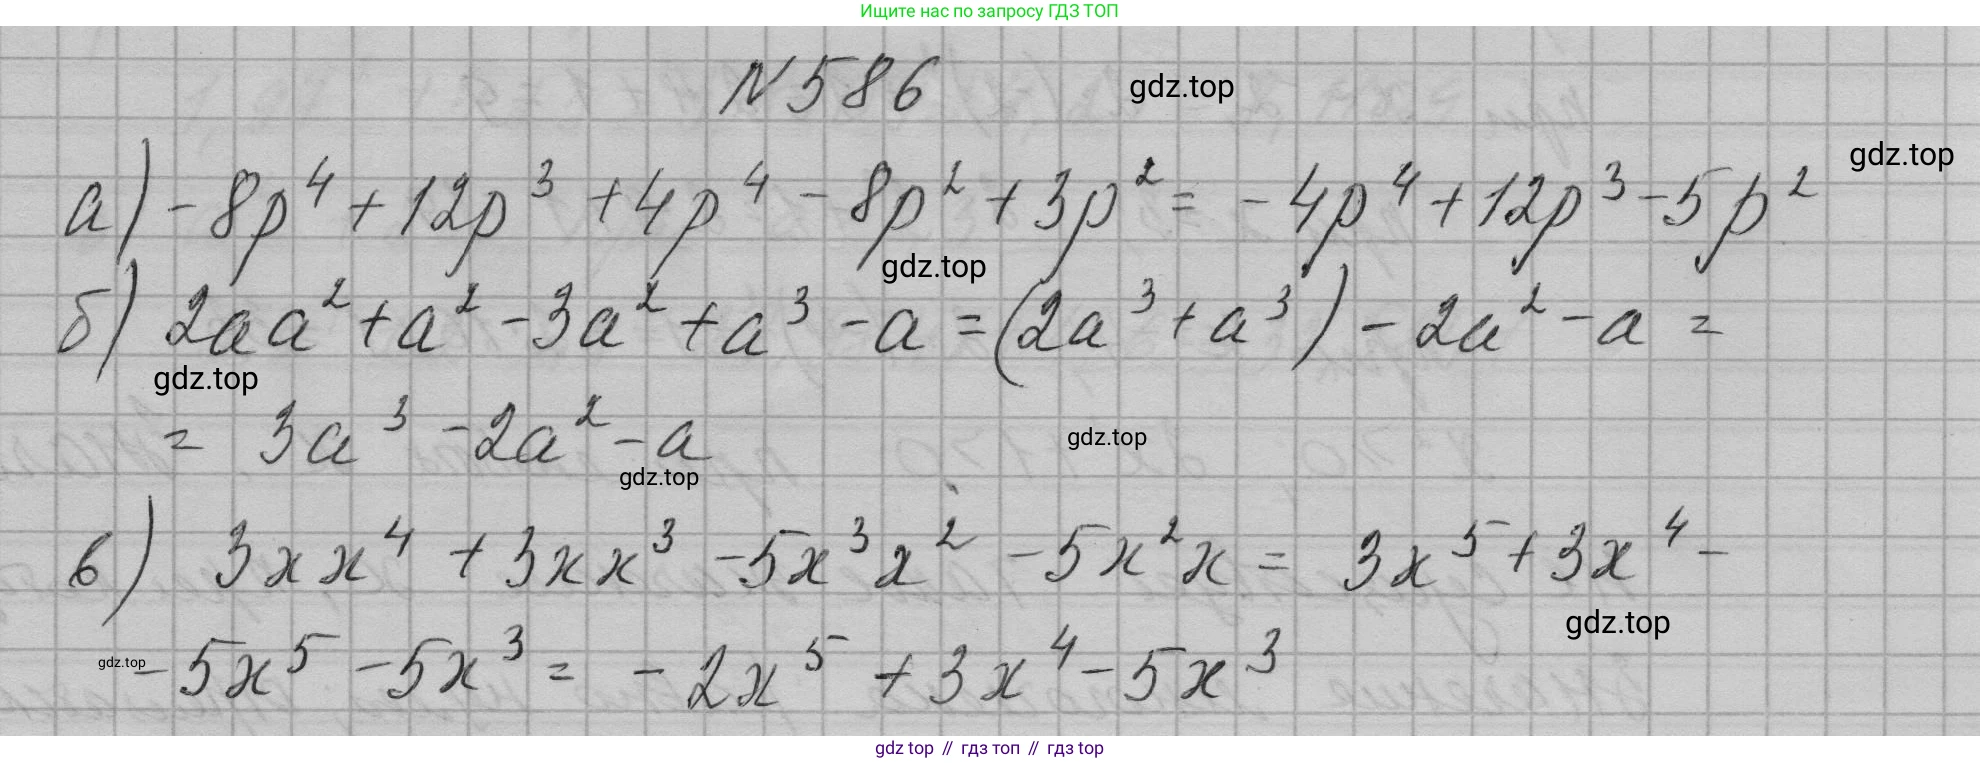 Ищите нас по запросу ГДЗ ТОП
N 586
gdz.top
gdz.top
а) -8p⁴ + 12p³ + 4p⁴ - 8p² + 3p² = -4p⁴ + 12p³ - 5p²
gdz.top
б) 2aa² + a² - 3a² + a³ - a = (2a³ + a³) - 2a² - a =
gdz.top
= 3a³ - 2a² - a
gdz.top
gdz.top
в) 3xx⁴ + 3xx³ - 5x³x² - 5x²x = 3x⁵ + 3x⁴ -
gdz.top
gdz.top
- 5x⁵ - 5x³ = -2x⁵ + 3x⁴ - 5x³
gdz top // гдз топ // гдз top